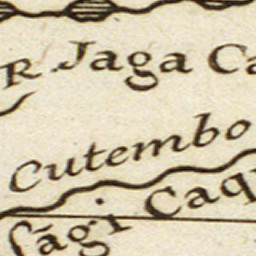 R. Jaga Ca
Cutembo
Caq
Sági